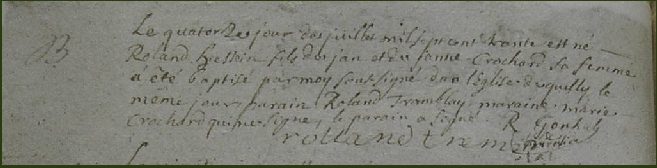 B
Le quatorze jour de juillet mil sept cent trante est né
Roland fils de jan et de Crochard sa femme
a été baptisé par moy soussigné dans l'église de le
même jour parain Roland Tramblay maraine marie
Crochard qui ne signe, le parain a signé R
rolland trem